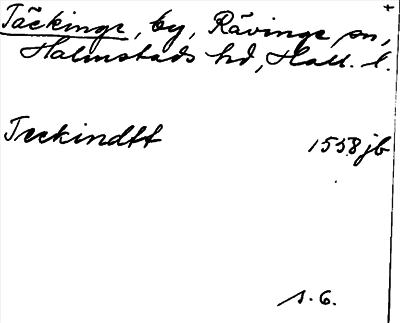 Täckinge, by, Rävinge sn,
Halmstads hd, Hall. l.
Teckindtt 1558 jb
s. 6.